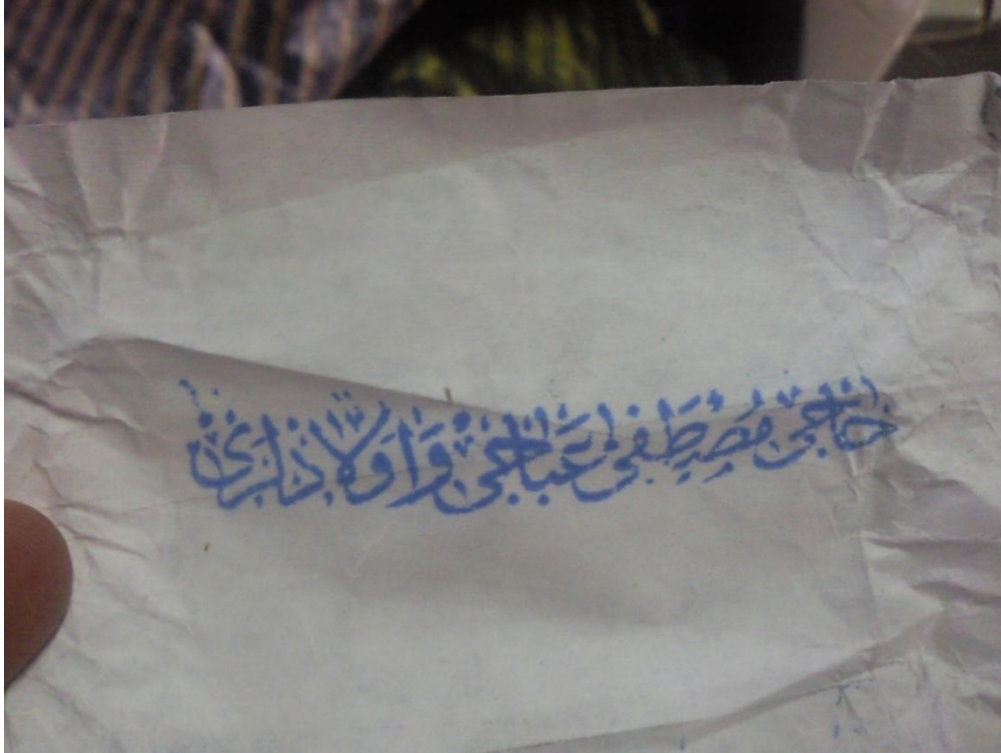 حاجی مُصطَفی عَباجی وَاَولادلَری